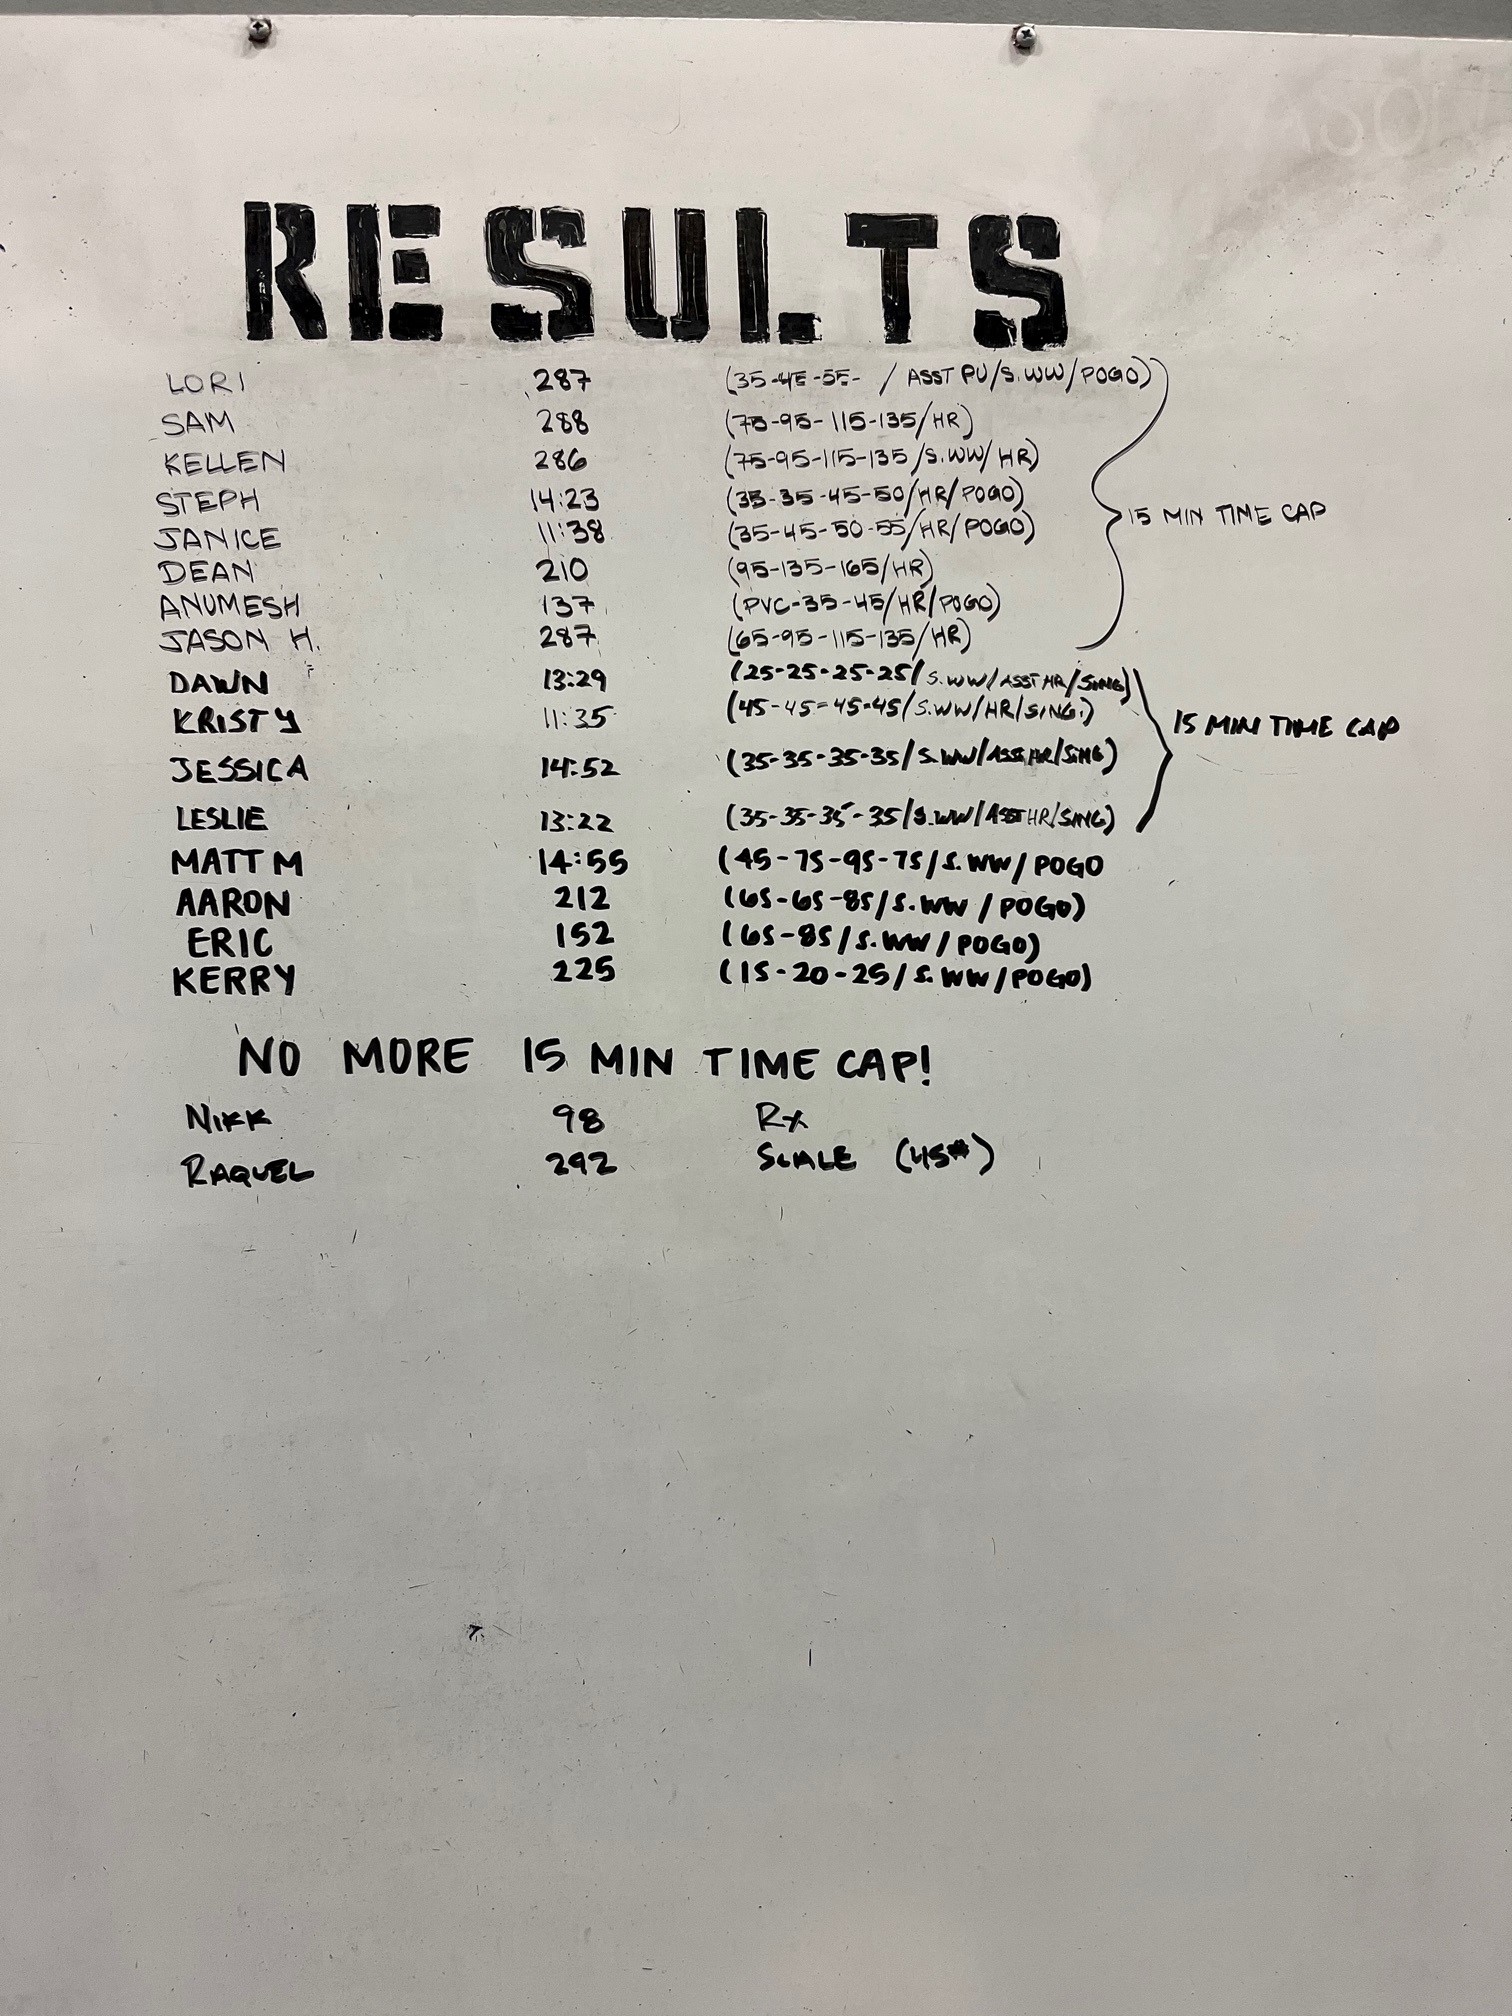 RESULTS
LORI 287 (35-45-55- / ASST PU/S.WW/POGO)
SAM 288 (75-95-115-135/HR)
KELLEN 286 (75-95-115-135/S.WW/HR)
STEPH 14:23 (35-35-45-50/HR/POGO)
15 MIN TIME CAP
JANICE 11:38 (35-45-50-55/HR/POGO)
DEAN 210 (95-135-165/HR)
ANUMESH 137 (PVC-35-45/HR/POGO)
JASON H. 287 (65-95-115-135/HR)
DAWN 13:29 (25-25-25-25/S.WW/ASST HR/SING)
KRISTY 11:35 (45-45-45-45/S.WW/HR/SING.)
15 MIN TIME CAP
JESSICA 14:52 (35-35-35-35/S.WW/ASST HR/SING)
LESLIE 13:22 (35-35-35-35/S.WW/ASST HR/SING)
MATT M 14:55 (45-75-95-75/S.WW/POGO
AARON 212 (65-65-85/S.WW/POGO)
ERIC 152 (65-85/S.WW/POGO)
KERRY 225 (15-20-25/S.WW/POGO)
NO MORE 15 MIN TIME CAP!
NIKK 98 Rx
RAQUEL 292 SCALE (45#)